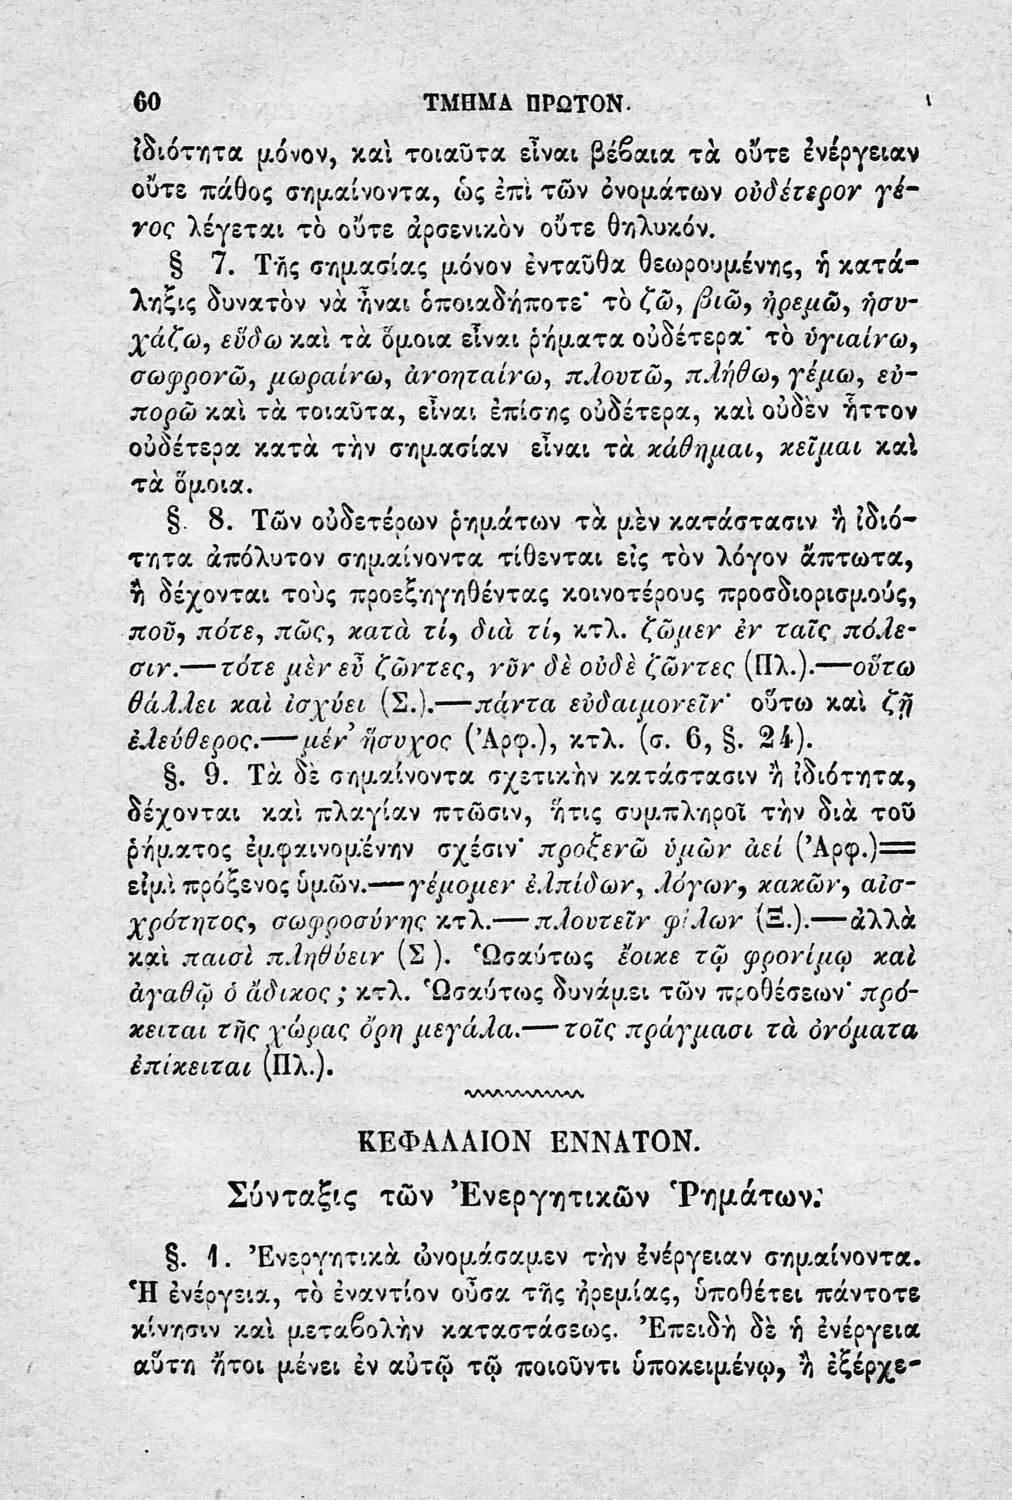 60 ΤΜΗΜΑ ΠΡΩΤΟΝ.
ἰδιότητα μόνον, καὶ τοιαῦτα εἶναι βέβαια τὰ οὔτε ἐνέργειαν
οὔτε πάθος σημαίνοντα, ὡς ἐπὶ τῶν ὀνομάτων οὐδέτερον γέ-
νος λέγεται τὸ οὔτε ἀρσενικὸν οὔτε θηλυκόν.
§ 7. Τῆς σημασίας μόνον ἐνταῦθα θεωρουμένης, ἡ κατά-
ληξις δυνατὸν νὰ ἦναι ὁποιαδήποτε· τὸ ζῶ, βιῶ, ἠρεμῶ, ἡσυ-
χάζω, εὕδω καὶ τὰ ὅμοια εἶναι ῥήματα οὐδέτερα· τὸ ὑγιαίνω,
σωφρονῶ, μωραίνω, ἀνοηταίνω, πλουτῶ, πλήθω, γέμω, εὐ-
πορῶ καὶ τὰ τοιαῦτα, εἶναι ἐπίσης οὐδέτερα, καὶ οὐδὲν ἧττον
οὐδέτερα κατὰ τὴν σημασίαν εἶναι τὰ κάθημαι, κεῖμαι καὶ
τὰ ὅμοια.
§. 8. Τῶν οὐδετέρων ῥημάτων τὰ μὲν κατάστασιν ἢ ἰδιό-
τητα ἀπόλυτον σημαίνοντα τίθενται εἰς τὸν λόγον ἄπτωτα,
ἢ δέχονται τοὺς προεξηγηθέντας κοινοτέρους προσδιορισμούς,
ποῦ, πότε, πῶς, κατὰ τί, διὰ τί, κτλ. ζῶμεν ἐν ταῖς πόλε-
σιν.—τότε μὲν εὖ ζῶντες, νῦν δὲ οὐδὲ ζῶντες (Πλ.).—οὕτω
θάλλει καὶ ἰσχύει (Σ.).—πάντα εὐδαιμονεῖν· οὕτω καὶ ζῇ
ἐλεύθερος.—μέν' ἥσυχος (Ἀρφ.), κτλ. (σ. 6, §. 24).
§. 9. Τὰ δὲ σημαίνοντα σχετικὴν κατάστασιν ἢ ἰδιότητα,
δέχονται καὶ πλαγίαν πτῶσιν, ἥτις συμπληροῖ τὴν διὰ τοῦ
ῥήματος ἐμφαινομένην σχέσιν· προξενῶ ὑμῶν ἀεί (Ἀρφ.)=
εἰμὶ πρόξενος ὑμῶν.—γέμομεν ἐλπίδων, λόγων, κακῶν, αἰσ-
χρότητος, σωφροσύνης κτλ.—πλουτεῖν φίλων (Ξ.).—ἀλλὰ
καὶ παισὶ πληθύειν (Σ ). Ὡσαύτως ἔοικε τῷ φρονίμῳ καὶ
ἀγαθῷ ὁ ἄδικος; κτλ. Ὡσαύτως δυνάμει τῶν προθέσεων· πρό-
κειται τῆς χώρας ὄρη μεγάλα.—τοῖς πράγμασι τὰ ὀνόματα
ἐπίκειται (Πλ.).
ΚΕΦΑΛΑΙΟΝ ΕΝΝΑΤΟΝ.
Σύνταξις τῶν Ἐνεργητικῶν Ῥημάτων.
§. 1. Ἐνεργητικὰ ὠνομάσαμεν τὴν ἐνέργειαν σημαίνοντα.
Ἡ ἐνέργεια, τὸ ἐναντίον οὖσα τῆς ἠρεμίας, ὑποθέτει πάντοτε
κίνησιν καὶ μεταβολὴν καταστάσεως. Ἐπειδὴ δὲ ἡ ἐνέργεια
αὕτη ἤτοι μένει ἐν αὐτῷ τῷ ποιοῦντι ὑποκειμένῳ, ἢ ἐξέρχε-